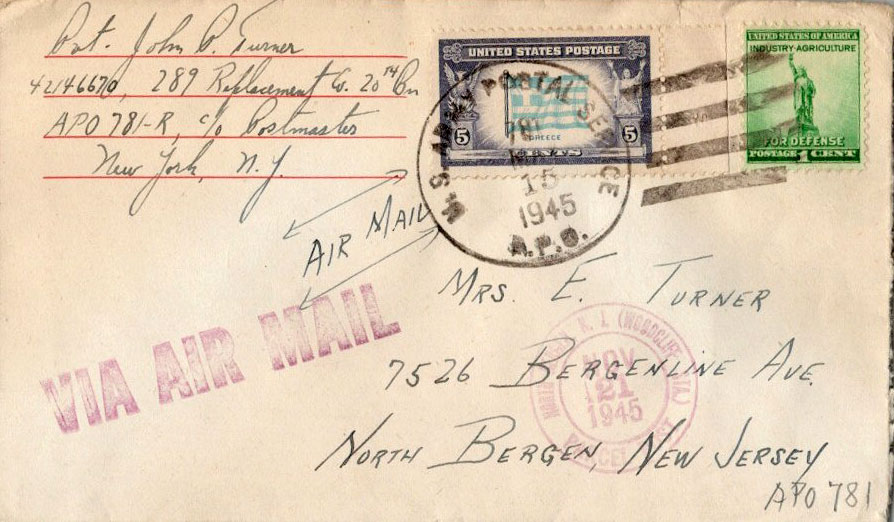 Pvt. John P. Turner
42146670, 289 Replacement Co. 20TH Bn
APO 781-R, c/o Postmaster
New York, N.Y.
UNITED STATES POSTAGE
5 5
GREECE
CENTS
UNITED STATES OF AMERICA
INDUSTRY·AGRICULTURE
FOR DEFENSE
POSTAGE 1 CENT
U.S. ARMY POSTAL SERVICE
781
NOV
15
1945
A.P.O.
AIR MAIL
VIA AIR MAIL
MRS. E. TURNER
7526 BERGENLINE AVE.
NORTH BERGEN, NEW JERSEY
N. J. (WOODCLIFF STA.)
NOV
21
1945
PARCEL POST
APO 781